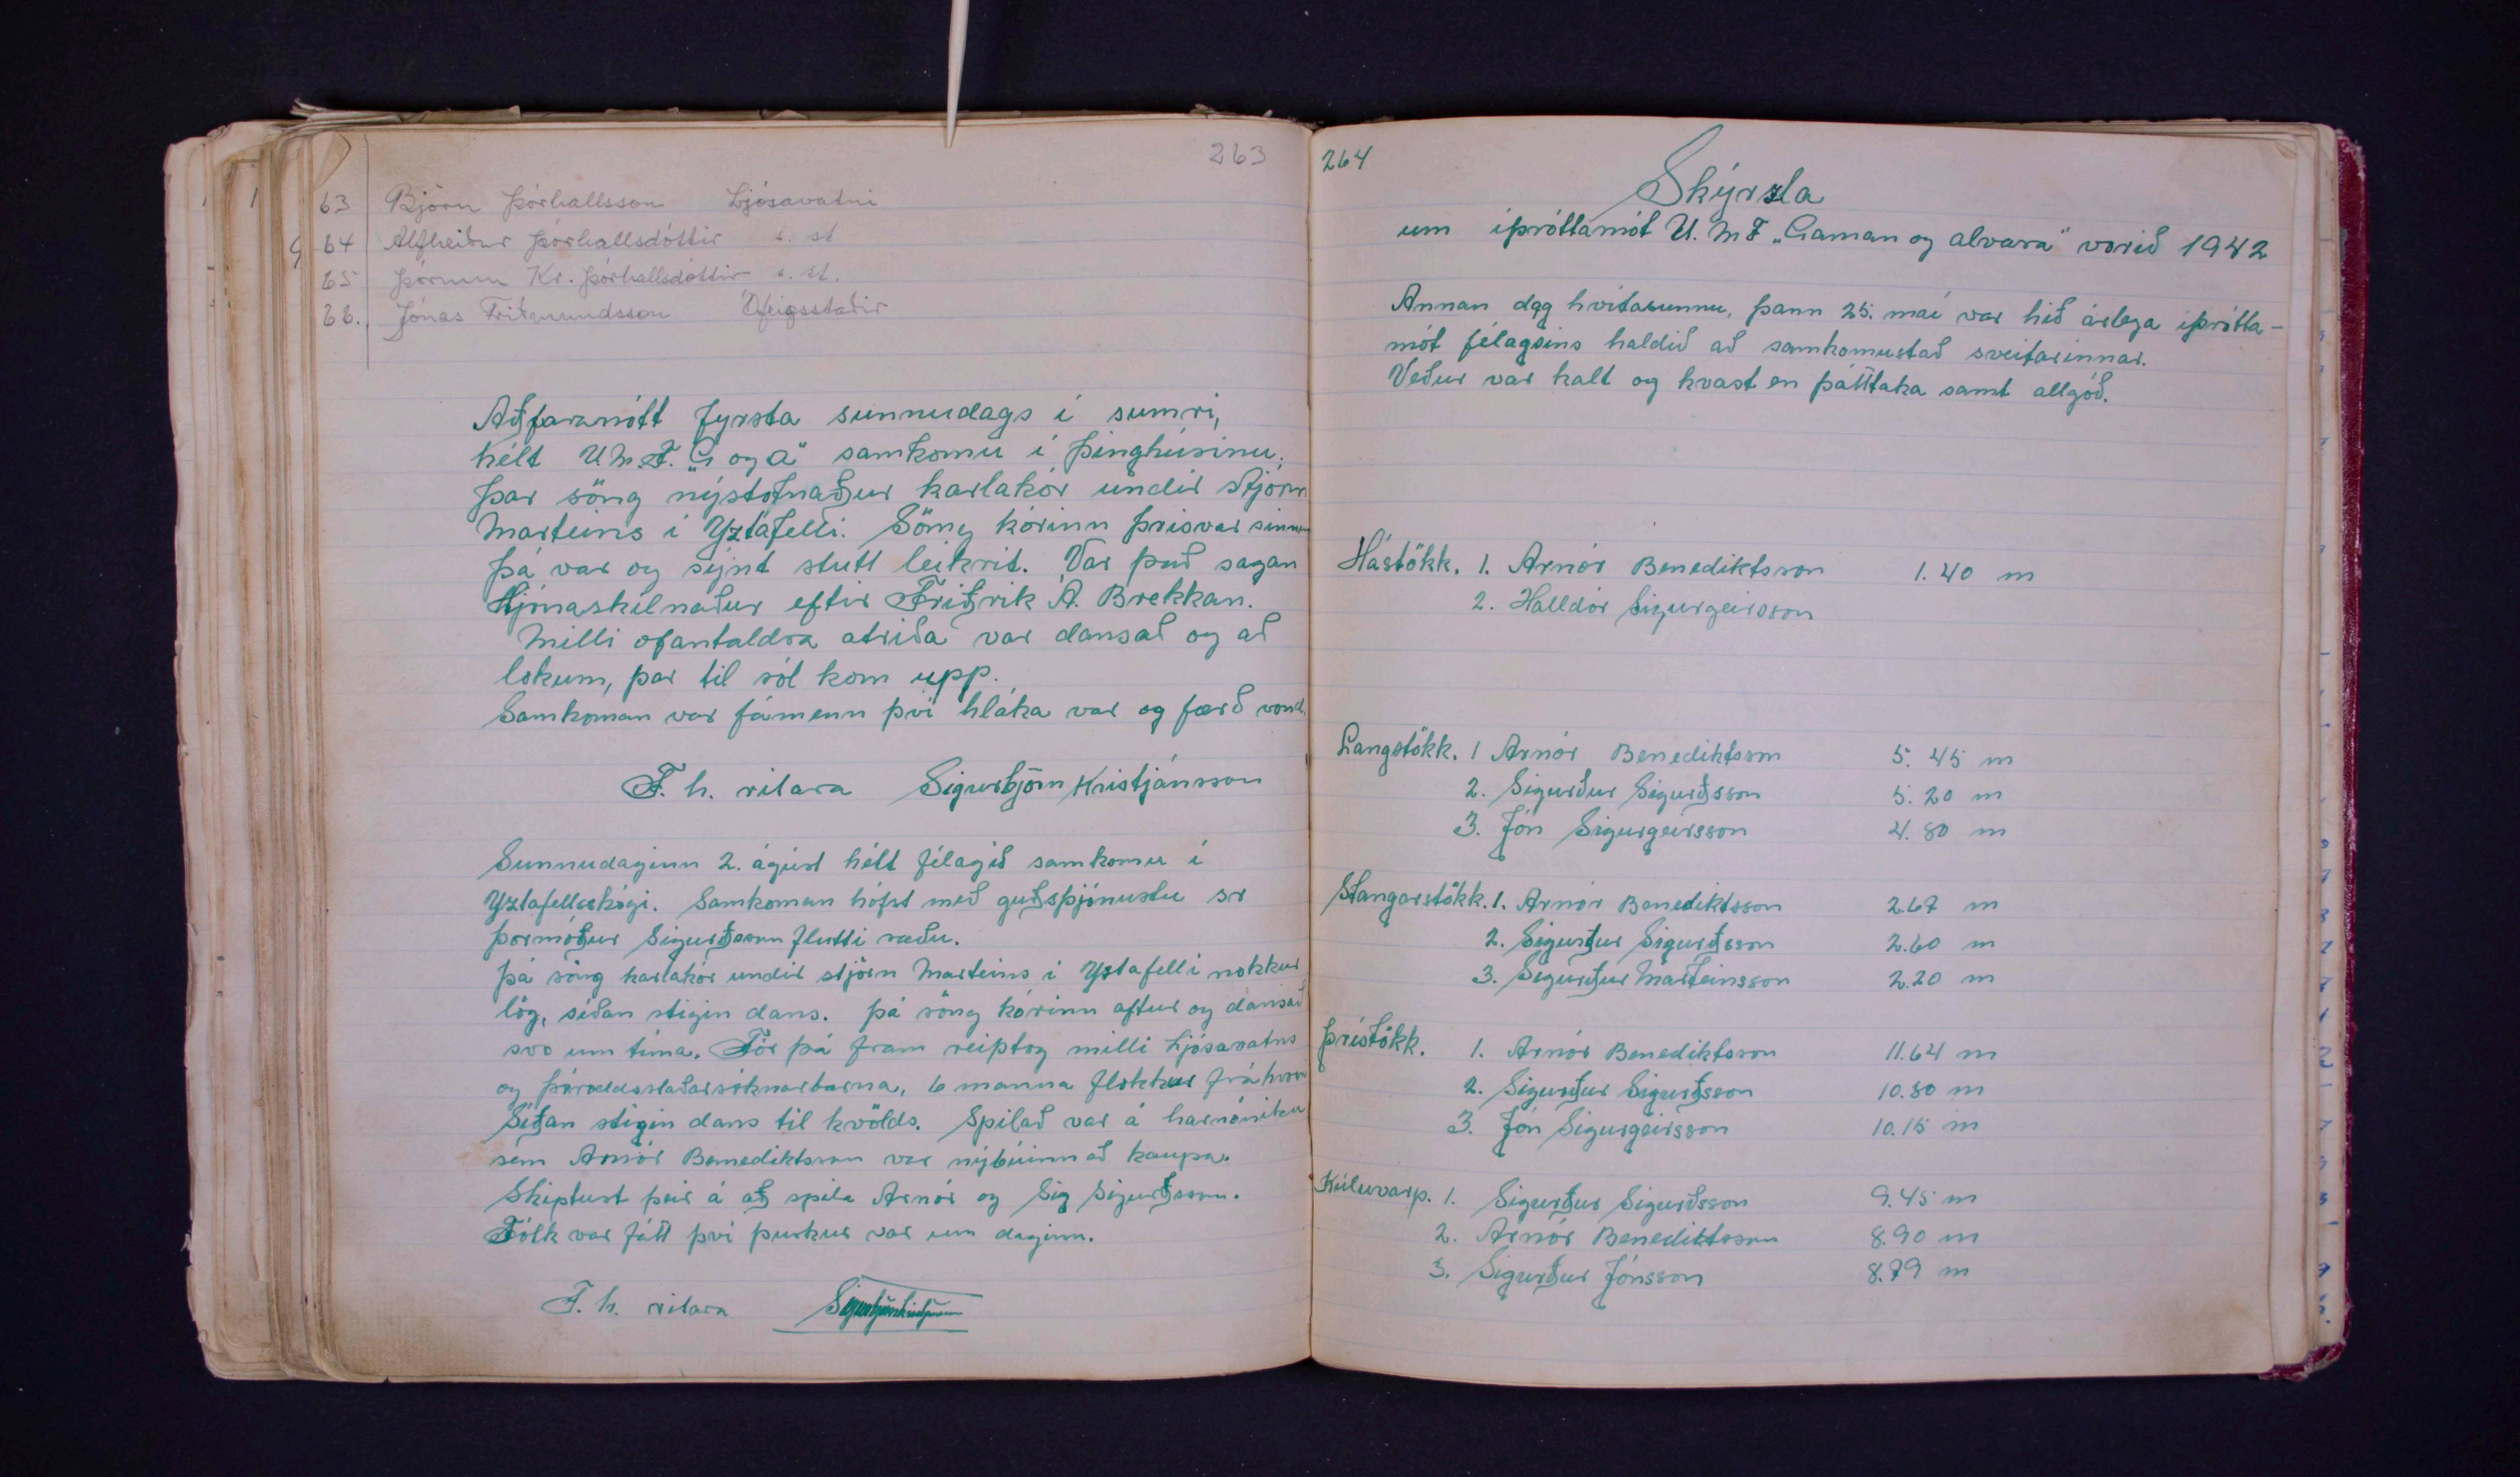 263
63 Björn Þórhallsson Ljósavatni
64 Alfheiður Þórhallsdóttir s. st
65 Þórunn Kr. Þórhallsdóttir s. st.
66. Jónas Friðmundsson Ófeigsstaðir
Aðfaranótt fyrsta sunnudags í sumri,
hélt U.M.F. „G og A" samkomu í Þinghúsinu.
Þar söng nýstofnaður karlakór undir stjórn
Marteins í Yztafelli. Söng kórinn þrisvar sinnum
Þá var og sýnt stutt leikrit. Var það sagan
Hjónaskilnaður eftir Friðrik Á. Brekkan.
Milli ofantaldra atriða var dansað og að
lokum, þar til sól kom upp.
Samkoman var fámenn því hláka var og færð vond.
F. h. ritara Sigurbjörn Kristjánsson
Sunnudaginn 2. ágúst hélt félagið samkomu í
Yztafellsskógi. Samkoman hófst með guðsþjónustu sr
Þormóður Sigurðsson flutti ræðu.
Þá söng karlakór undir stjórn Marteins í Yztafelli nokkur
lög, síðan stigin dans. Þá söng kórinn aftur og dansað
svo um tíma. Fór þá fram reiptog milli Ljósavatns
og Þóroddsstaðarsóknarbarna, 6 manna flokkur frá hvorri
Síðan stigin dans til kvölds. Spilað var á harmóniku
sem Arnór Benediktsson var nýbúinn að kaupa.
Skiptust þeir á að spila Arnór og Sig Sigurðsson.
Fólk var fátt því þurkur var um daginn.
F. h. ritara Sigurbjörn Kristjánsson
264
Skýrsla
um íþróttamót U.M.F „Gaman og alvara" vorið 1942
Annan dag hvítasunnu, þann 25. maí var hið árlega íþrótta-
mót félagsins haldið að samkomustað sveitarinnar.
Veður var kalt og hvast en þátttaka samt allgóð.
Hástökk. 1. Arnór Benediktsson 1.40 m
2. Halldór Sigurgeirsson
Langstökk. 1 Arnór Benediktsson 5.45 m
2. Sigurður Sigurðsson 5.20 m
3. Jón Sigurgeirsson 4.80 m
Stangarstökk. 1. Arnór Benediktsson 2.67 m
2. Sigurður Sigurðsson 2.60 m
3. Sigurður Marteinsson 2.20 m
Þrístökk. 1. Arnór Benediktsson 11.64 m
2. Sigurður Sigurðsson 10.80 m
3. Jón Sigurgeirsson 10.15 m
Kúluvarp. 1. Sigurður Sigurðsson 9.45 m
2. Arnór Benediktsson 8.90 m
3. Sigurður Jónsson 8.79 m